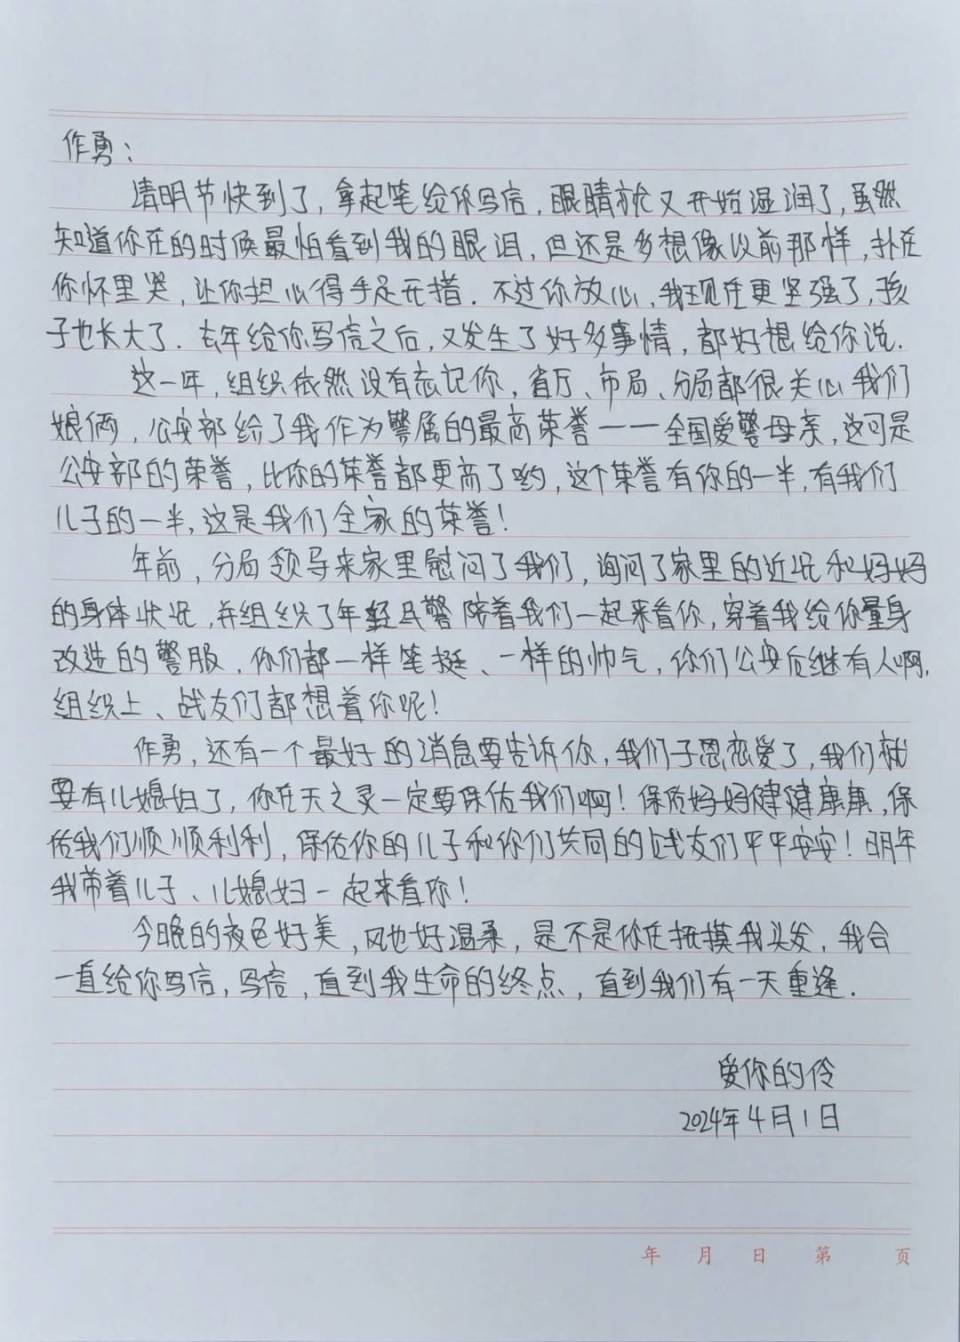 作勇：
清明节快到了，拿起笔给你写信，眼睛就又开始湿润了，虽然
知道你在的时候最怕看到我的眼泪，但还是多想像以前那样，扑在
你怀里哭，让你担心得手足无措．不过你放心，我现在更坚强了，孩
子也长大了．去年给你写信之后，又发生了好多事情，都好想给你说．
这一年，组织依然没有忘记你，省厅、市局、分局都很关心我们
娘俩，公安部给了我作为警属的最高荣誉——全国爱警母亲，这可是
公安部的荣誉，比你的荣誉都更高了哟，这个荣誉有你的一半，有我们
儿子的一半，这是我们全家的荣誉！
年前，分局领导来家里慰问了我们，询问了家里的近况和妈妈
的身体状况，并组织了年轻民警陪着我们一起来看你，穿着我给你量身
改造的警服，你们都一样笔挺、一样的帅气，你们公安后继有人啊，
组织上、战友们都想着你呢！
作勇，还有一个最好的消息要告诉你，我们子恩恋爱了，我们就
要有儿媳妇了，你在天之灵一定要保佑我们啊！保佑妈妈健健康康，保
佑我们顺顺利利，保佑你的儿子和你们共同的战友们平平安安！明年
我带着儿子、儿媳妇一起来看你！
今晚的夜色好美，风也好温柔，是不是你在抚摸我头发，我会
一直给你写信，写信，直到我生命的终点，直到我们有一天重逢．
爱你的伶
2024年4月1日
年 月 日 第 页